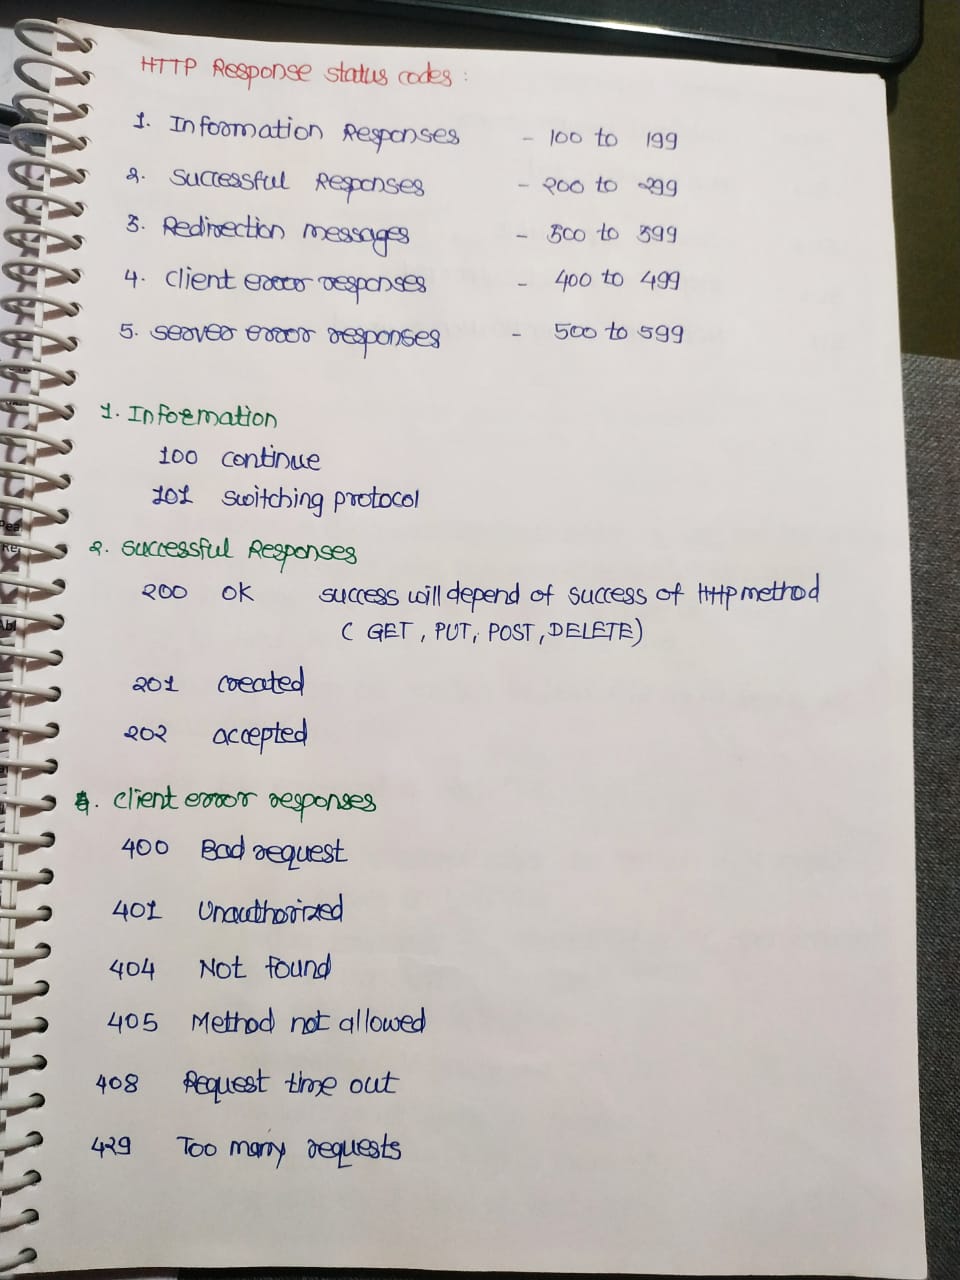 HTTP Response status codes :
1. Information Responses - 100 to 199
2. Successful Responses - 200 to 299
3. Redirection messages - 300 to 399
4. Client error responses - 400 to 499
5. server error responses - 500 to 599
1. Information
100 continue
101 switching protocol
2. Successful Responses
200 OK success will depend of success of HTTP method
( GET, PUT, POST, DELETE)
201 created
202 accepted
4. Client error responses
400 Bad request
401 Unauthorized
404 Not found
405 Method not allowed
408 Request time out
429 Too many requests